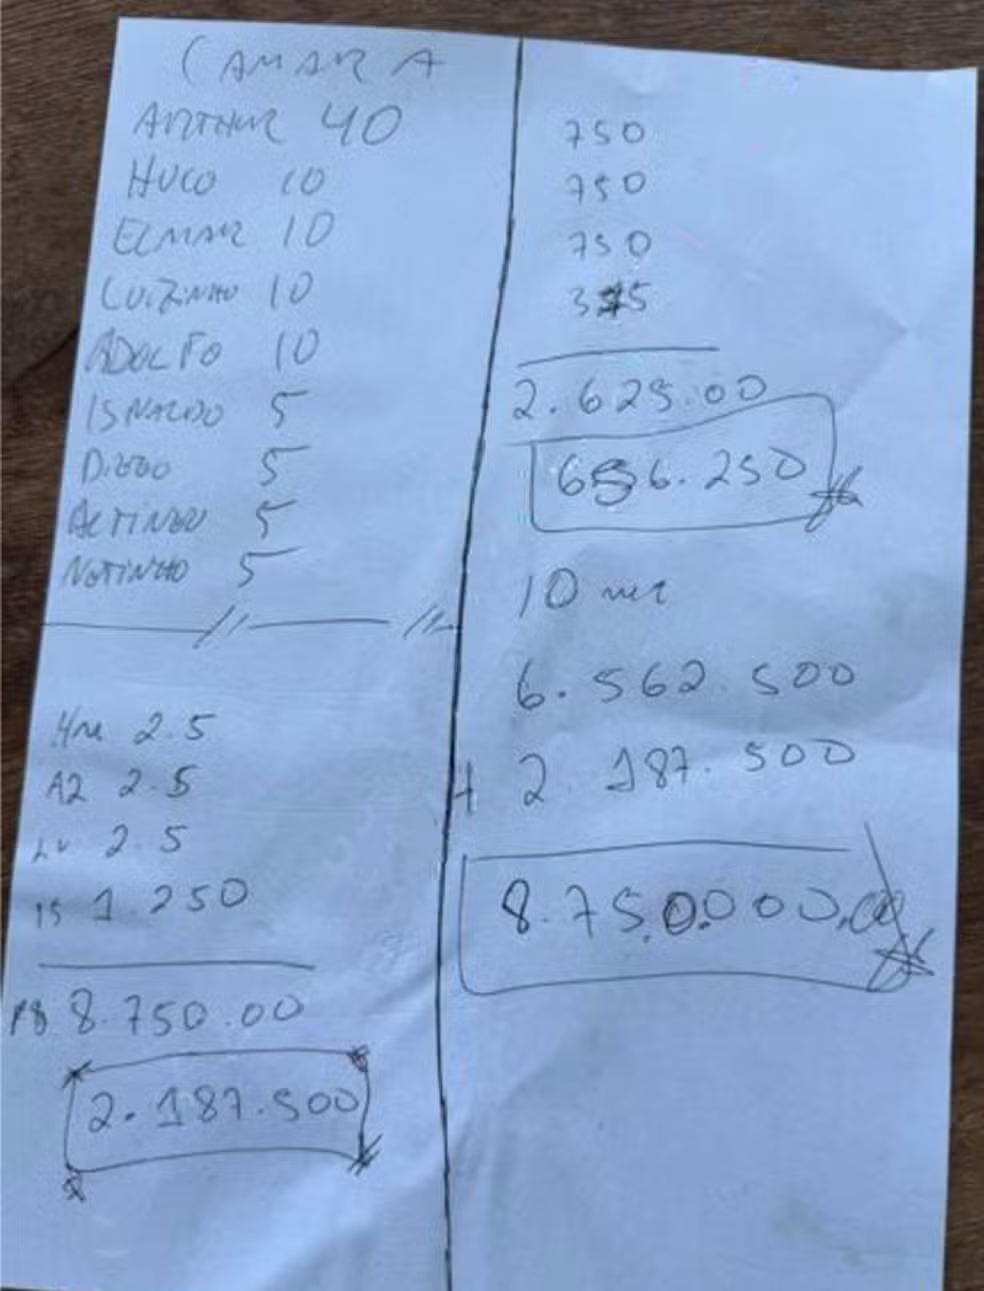 CAMARA
ARTHUR 40
HUGO 10
ELMAR 10
LUIZINHO 10
ADOLFO 10
ISNALDO 5
DIEGO 5
ALTINEU 5
NETINHO 5
2.5
AZ 2.5
LU 2.5
IS 1.250
8.750.00
2.187.500
750
750
750
375
2.625.00
656.250
10
6.562.500
+ 2.187.500
8.750.000,00